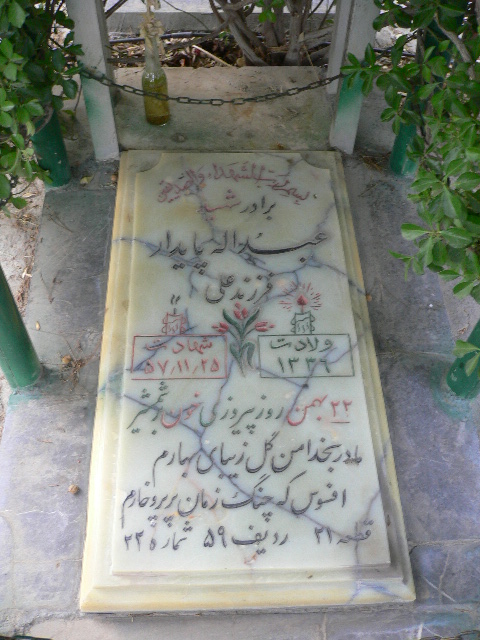 بسم رب الشهداء والصدیقین
برادر شهید
عبداله پایدار
فرزند علی
ولادت شهادت
۱۳۳۶ ۵۷/۱۱/۲۵
۲۲ بهمن روز پیروزی خون بر شمشیر
مادر بخدا من گل زیبای بهارم
افسوس که چنگ زمان پرپر و خارم
قطعه ۲۱ ردیف ۵۹ شماره ۲۲